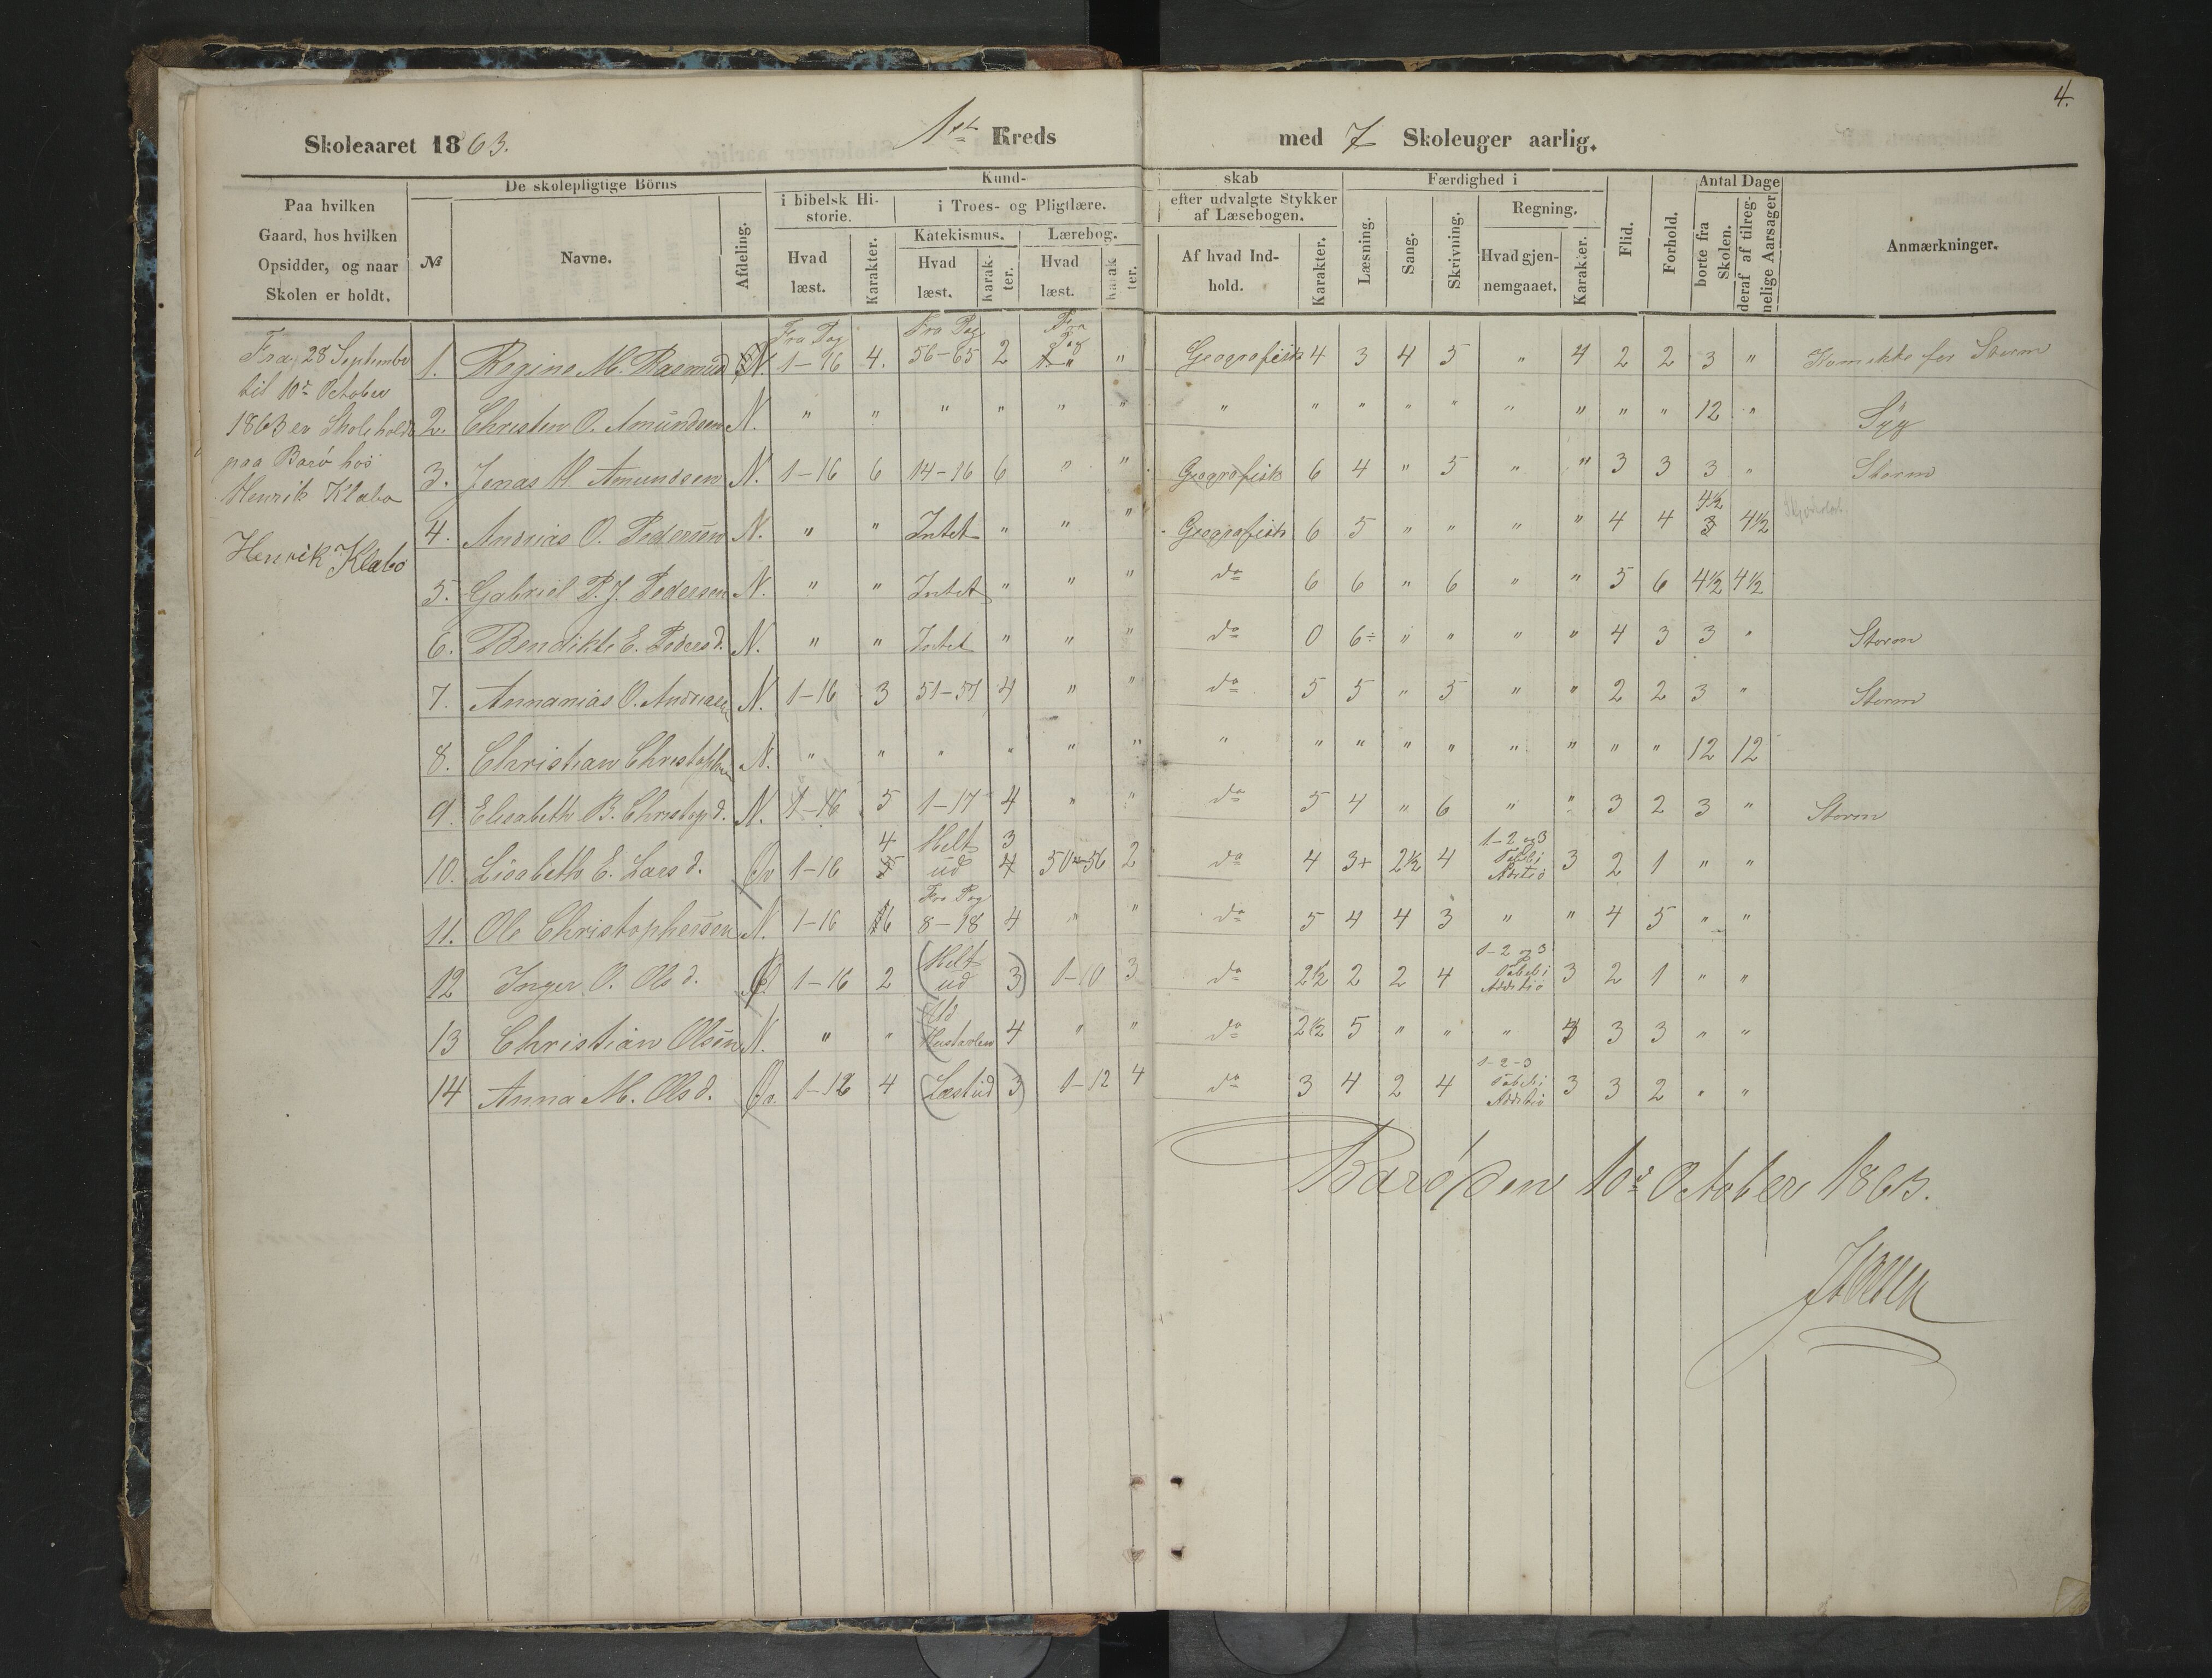 4.
Skoleaaret 1863. 1ste Kreds med 7 Skoleuger aarlig.
Paa hvilken
Gaard, hos hvilken
Opsidder, og naar
Skolen er holdt.
De skolepligtige Börns
№
Navne.
Afdeling.
Kund-
i bibelsk Hi-
storie.
Hvad
læst.
Karakter.
i Troes- og Pligtlære.
Katekismus.
Hvad
læst.
Karak-
ter.
Lærebog.
Hvad
læst.
Karak
ter.
skab
efter udvalgte Stykker
af Læsebogen.
Af hvad Ind-
hold.
Karakter.
Færdighed i
Læsning.
Sang.
Skrivning.
Regning.
Hvad gjen-
nemgaaet.
Karakter.
Flid.
Forhold.
Antal Dage
borte fra
Skolen.
deraf af tilreg-
nelige Aarsager
Anmærkninger.
Fra 28 September
til 10de October
1863 er Skole holdt
paa Barö hos
Henrik Klabo
Henrik Klabo
Fra Pag Fra Pag Fra Pag
1. Regine M. Rasmusd N. 1-16 4. 56-65 2 " " Geografisk 4 3 4 5 " 4 2 2 3 " Kom ikke for Storm
2. Christen O. Amundsen N. " " " " " " " " " " " " " " " 12 " Syg
3. Jonas M Amundsen N. 1-16 6 14-16 6 " " Geografisk 6 4 " 5 " " 3 3 3 " Storm
4. Andrias O. Pedersen N. " " Intet " " " Geografisk 6 5 " " " " 4 4 4½ 3 4½
5. Gabriel P. J. Pedersen N. " " Intet " " " do 6 6 " 6 " " 5 6 4½ 4½
6. Bendikte E. Pedersd. N. " " Intet " " " do 0 6÷ " " " " 4 3 3 " Storm
7. Annanias O. Andreasen N. 1-16 3 51-57 4 " " do 5 5 " 5 " " 2 2 3 " Storm
8. Christian Christophersen N. " " " " " " " " " " " " " " " 12 12
9. Elisabeth B. Christopd. N. 1-16 5 1-17 4 " " do 5 4 " 6 " " 3 2 3 " Storm
4 Helt 3 1-2 og 3
10. Lisabeth E. Larsd. Öv 1-16 5 ud 4 50-56 2 do 4 3+ 2½ 4 Tabel i 3 2 1 " "
Fra Pag
11. Ole Christophersen N. 1-16 6 8-18 4 " " do 5 4 4 3 " " 4 5 " "
(Helt 1-2 og 3
12 Inger O. Olsd. 1-16 2 ud 3) 1-10 3 do 2½ 2 2 4 Tabel i Additio 3 2 1 " "
13 Christian Olsen N. " " Ud Hustavlen 4 " " do 2½ 5 " " " 4 3 3 " "
1-2-3
14 Anna M. Olsd. Öv. 1-16 4 (Læst ud 3) 1-12 4 do 3 4 2 4 Tabel i Additio 3 3 2 " "
Barö den 10de October 1863.